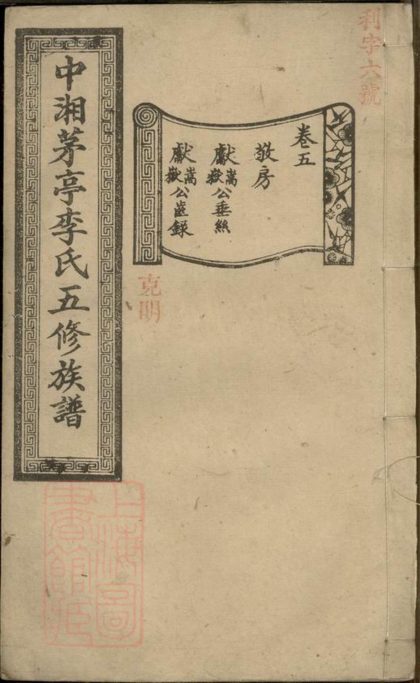 利字六號
卷五
敬房
獻嵩嶽公垂絲
獻嵩嶽公齒錄
克明
中湘茅亭李氏五修族譜
上海圖
書館藏